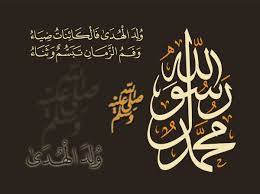 وُلِدَ الْهُدَى فَالْكَائِنَاتُ ضِيَاءُ
وَفَمُ الزَّمَانِ تَبَسُّمٌ وَثَنَاءُ
محمد رسول الله
صلى الله عليه وسلم
صلى الله عليه وسلم
وُلِدَ الْهُدَىٰ